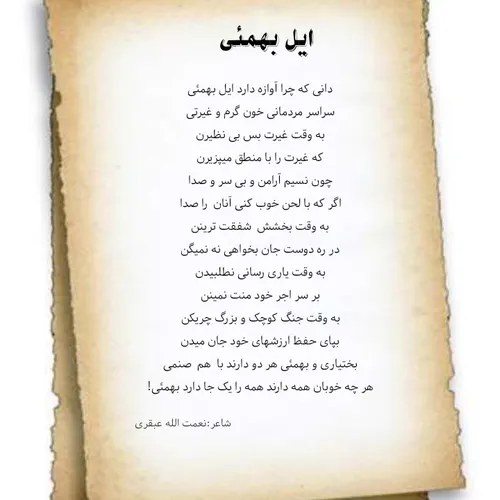 ایل بهمئی
دانی که چرا آوازه دارد ایل بهمئی
سراسر مردمانی خون گرم و غیرتی
به وقت غیرت بس بی نظیرن
که غیرت را با منطق میپزیرن
چون نسیم آرامن و بی سر و صدا
اگر که با لحن خوب کنی آنان را صدا
به وقت بخشش شفقت ترینن
در ره دوست جان بخواهی نه نمیگن
به وقت یاری رسانی نطلبیدن
بر سر اجر خود منت نمینن
به وقت جنگ کوچک و بزرگ چریکن
بپای حفظ ارزشهای خود جان میدن
بختیاری و بهمئی هر دو دارند با هم صنمی
هر چه خوبان همه دارند همه را یک جا دارد بهمئی!
شاعر:نعمت الله عبقری